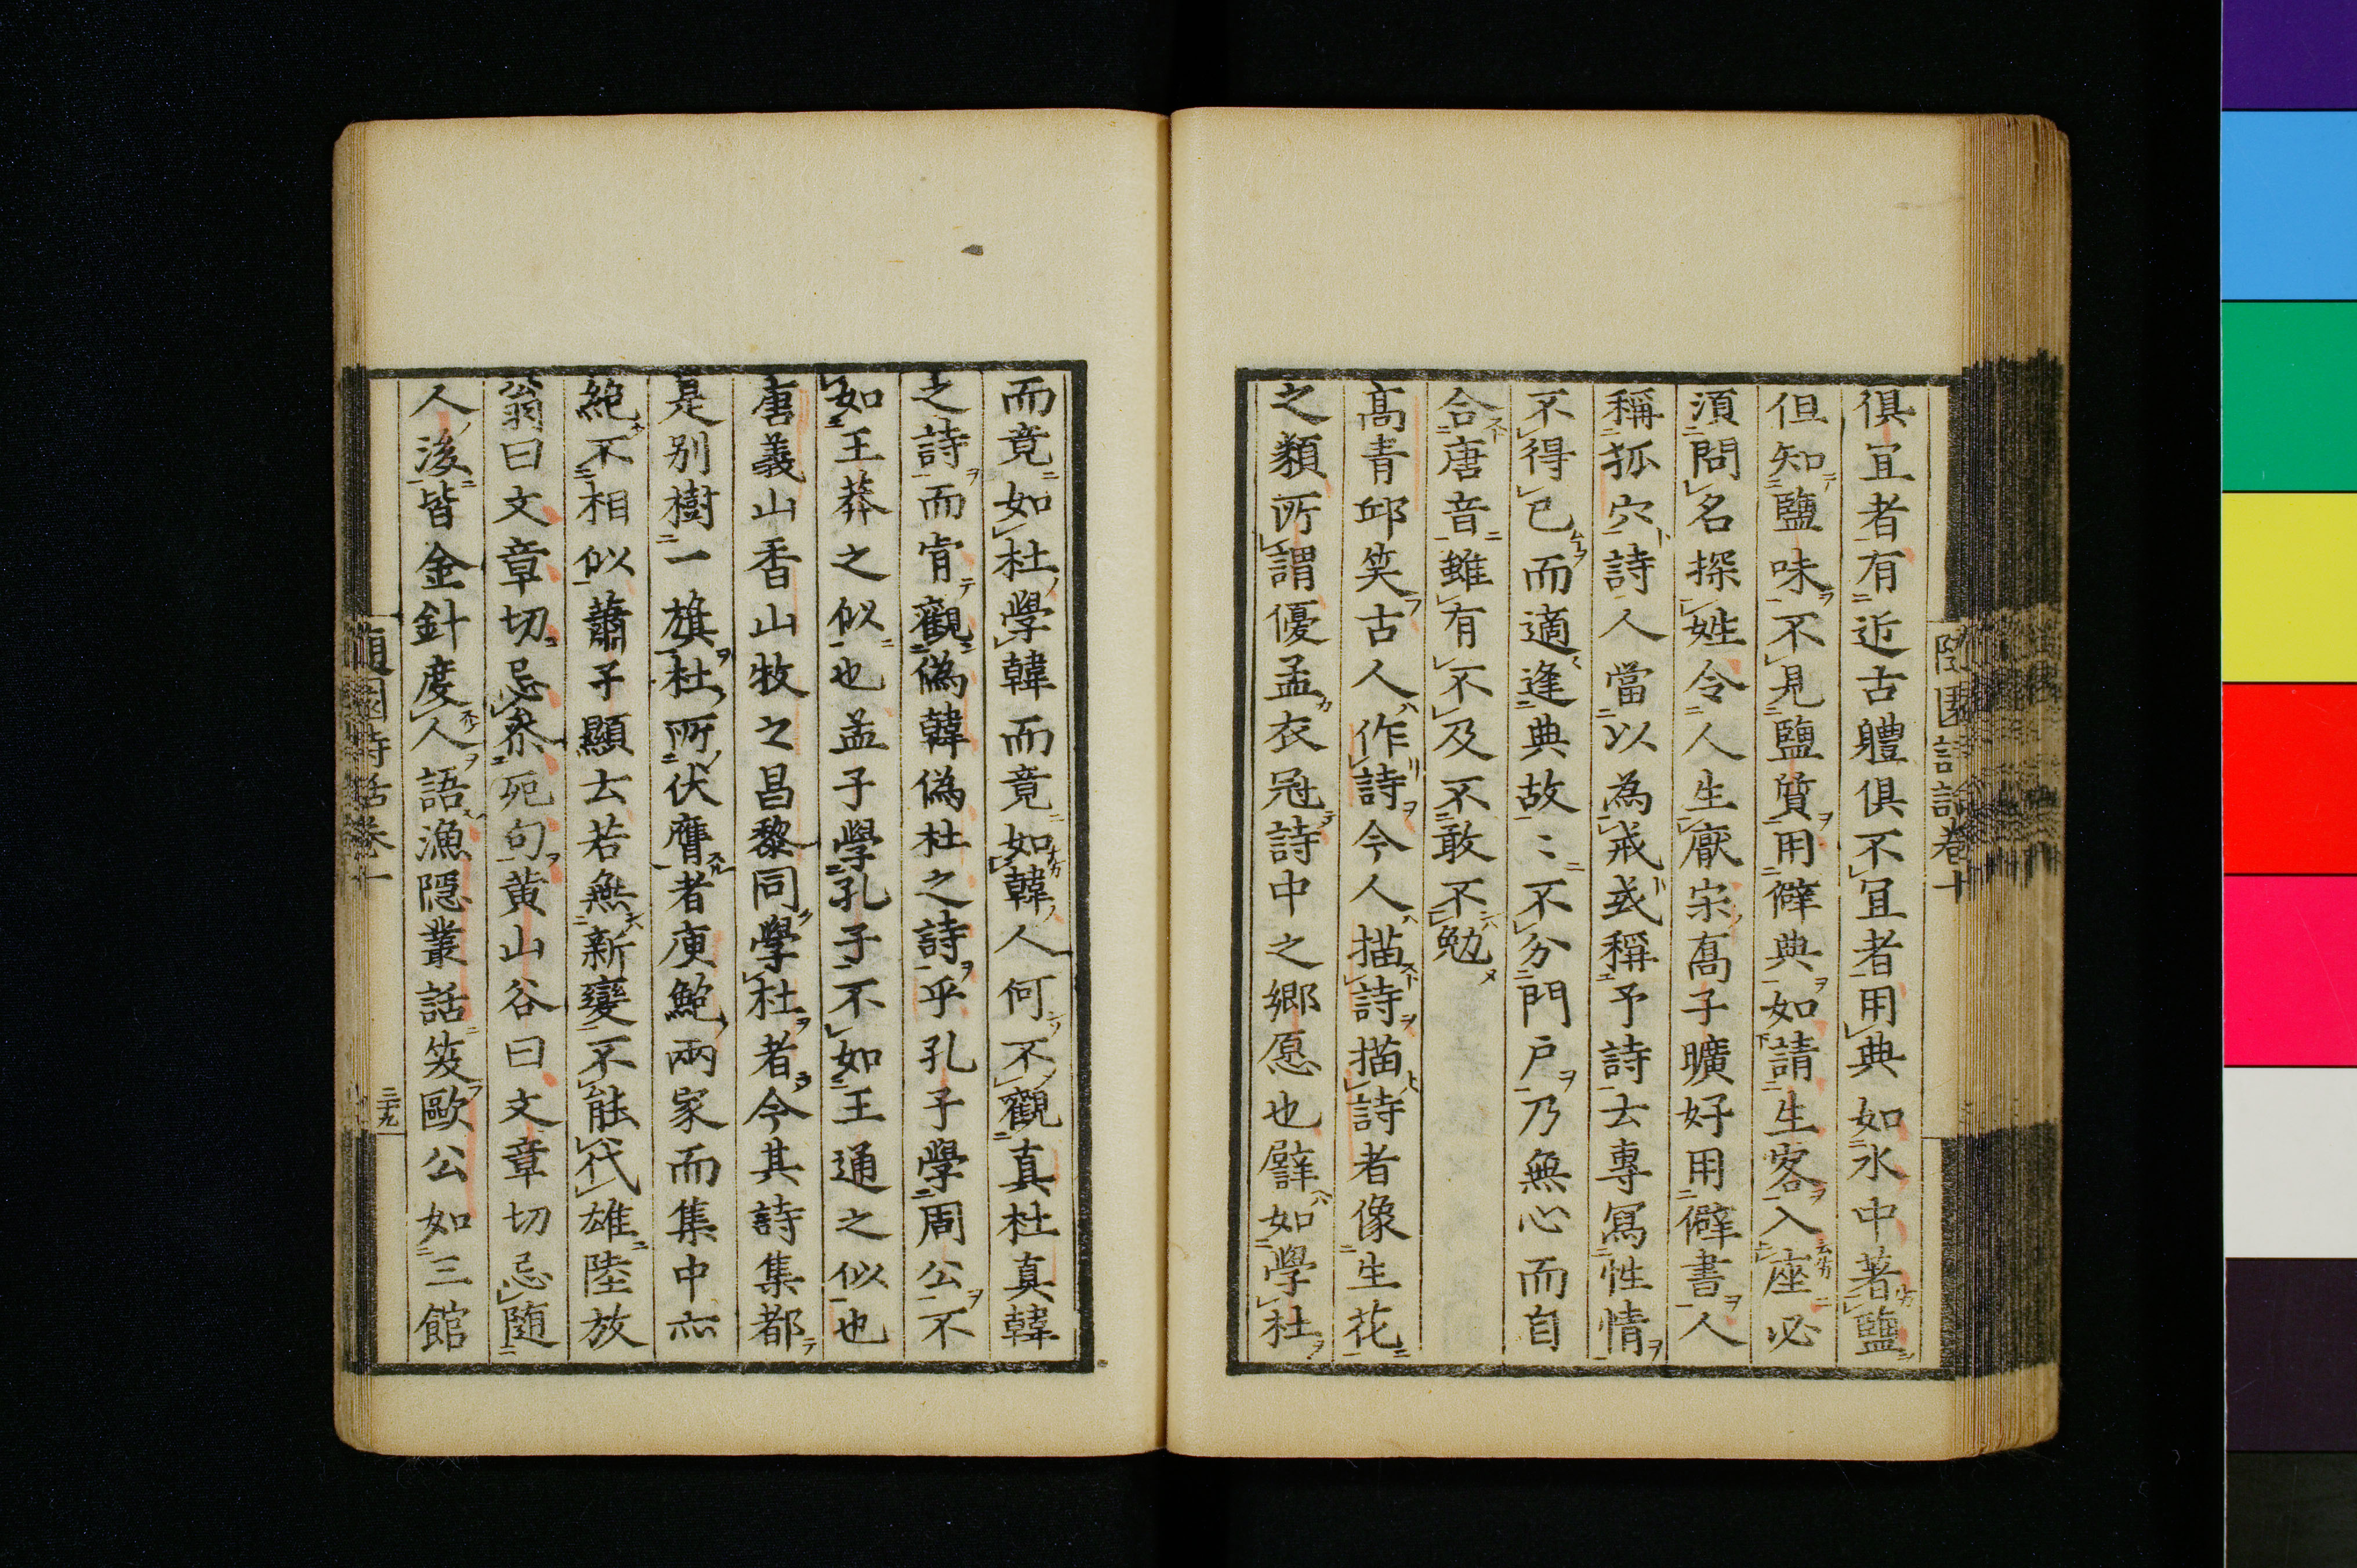 俱宜者有近古軆俱不宜者用典如水中著鹽
但知鹽味不見鹽質用僻典如請生客入座必
湏問名探姓令人生厭宋髙子曠好用僻書人
稱狐穴詩人當以為戒或稱予詩云專寫性情
不得已而適逢典故〻不分門戸乃無心而自
合唐音雖有不及不敢不勉
髙青邱笑古人作詩今人描詩描詩者像生花
之類所謂優孟衣冠詩中之郷愿也譬如學杜
而竟如杜學韓而竟如韓人何不觀真杜真韓
之詩而肯觀偽韓偽杜之詩乎孔子學周公不
如王莽之似也孟子學孔子不如王通之似也
唐義山香山牧之昌黎同學杜者今其詩集都
是别樹一旗杜所伏膺者庾鮑兩家而集中亦
絶不相似蕭子顯云若無新變不能代雄陸放
翁曰文章切忌叅死句黄山谷曰文章切忌随
人後皆金針度人語漁隠叢話笑歐公如三館
隨園詩話卷一
三十九